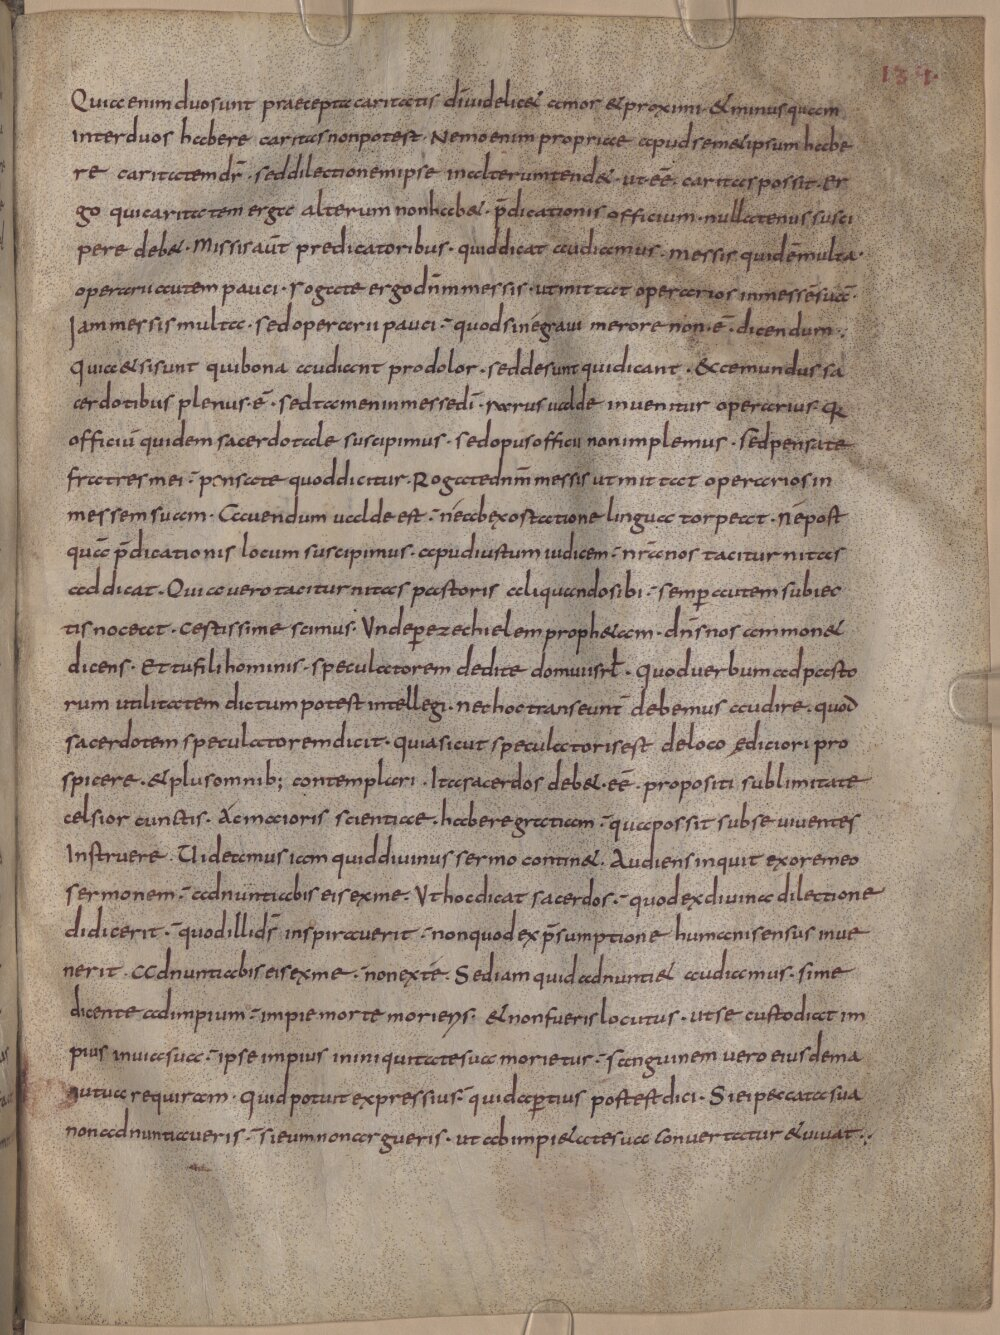 134.
Quia enim duo sunt praecepta caritatis d͞i uidelicet amor & proximi · & minus quam
inter duos habere caritas non potest · Nemo enim propriae apud semetipsum habe
re caritatem dr̄ · sed dilectionem ipse in alterum tendet · ut eē caritas possit · Er
go qui caritatem erga alterum non habet · p̄dicationis officium · nullatenus susci
pere debet · Missis aūt predicatoribus · quid dicat audiamus · messis quidē multa ·
operarii autem pauci · rogate ergo dn̄m messis · ut mittat operarios in messē suā ·
Iam messis multa · sed operarii pauci · quod sine graui merore non · ē · dicendum ·
Quia etsi sunt qui bona audiant pro dolor · sed desunt qui dicant · Ecce mundus sa
cerdotibus plenus · ē · sed tamen in messe dī · rarus ualde inuenitur operarius · Q
officiū quidem sacerdotale suscipimus · sed opus officii non implemus · sed pensate
fratres mei · pensate quod dicitur · Rogate dn̄m messis ut mittat operarios in
messem suam · Cauendum ualde est · ne ab exostatione lingua torpeat · ne post
quā p̄dicationis locum suscipimus · apud iustum iudicem · nr̄a nos taciturnitas
addicat · Quia uero taciturnitas pastoris aliquando sibi · semper autem subiec
tis noceat · certissime scimus · Unde per ezechielem prophetam · dn̄s nos ammonet
dicens · Et tu fili hominis · speculatorem dedi te domui isrl̄ · Quod uerbum ad pasto
rum utilitatem dictum potest intellegi · nec hoc transeunt̄ debemus audire · quod
sacerdotem speculatorem dicit · quia sicut speculatoris est de loco ediciori pro
spicere · & plus omnib; contemplari · Ita sacerdos debet · eē · propositi sublimitate
celsior cunctis · Ac maioris scientiae · habere gratiam · qua possit sub se uiuentes
Instruere · Uideamus iam quid diuinus sermo continet · Audiens inquit ex ore meo
sermonem · adnuntiabis eis ex me · Ut hoc dicat sacerdos · quod ex diuina dilectione
didicerit · quod illi ds̄ inspirauerit · non quod ex p̄sumptione humani sensus inue
nerit · Adnuntiabis eis ex me · non ex te · Sed iam quid adnuntiet audiamus · si me
dicente ad impium · impie morte morieris · & non fueris locutus · ut se custodiat im
pius in uia sua · ipse impius in iniquitate sua morietur · sanguinem uero eius de ma
nu tua requiram · Quid potuit expressius · quid apertius postest dici · Si ei peccata sua
non adnuntiaueris · si eum non argueris · ut ab impietate sua conuertatur & uiuat ·